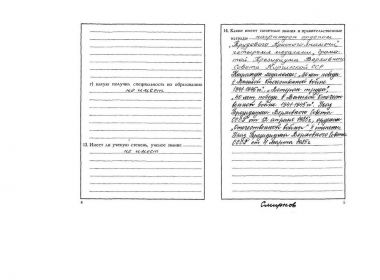 г) какую получил специальность по образованию
не имеет
13. Имеет ли ученую степень, ученое звание
не имеет
4
14. Какие имеет почетные звания и правительственные
награды награжден орденом
Трудового Красного Знамени
четырьмя медалями, Грамо-
той Президиума Верховного
Совета Киргизской ССР
войне
1941-1945гг", "Ветеран труда",
"40 лет победы в Великой Отечест-
венной войне 1941-1945гг". Указ
Президиума Верховного Совета
СССР от 12 апреля 1985г., орденом
"Отечественной войны" II степени
Указ Президиума Верховного Совета
СССР от 11 марта 1985г.
Смирнов
5